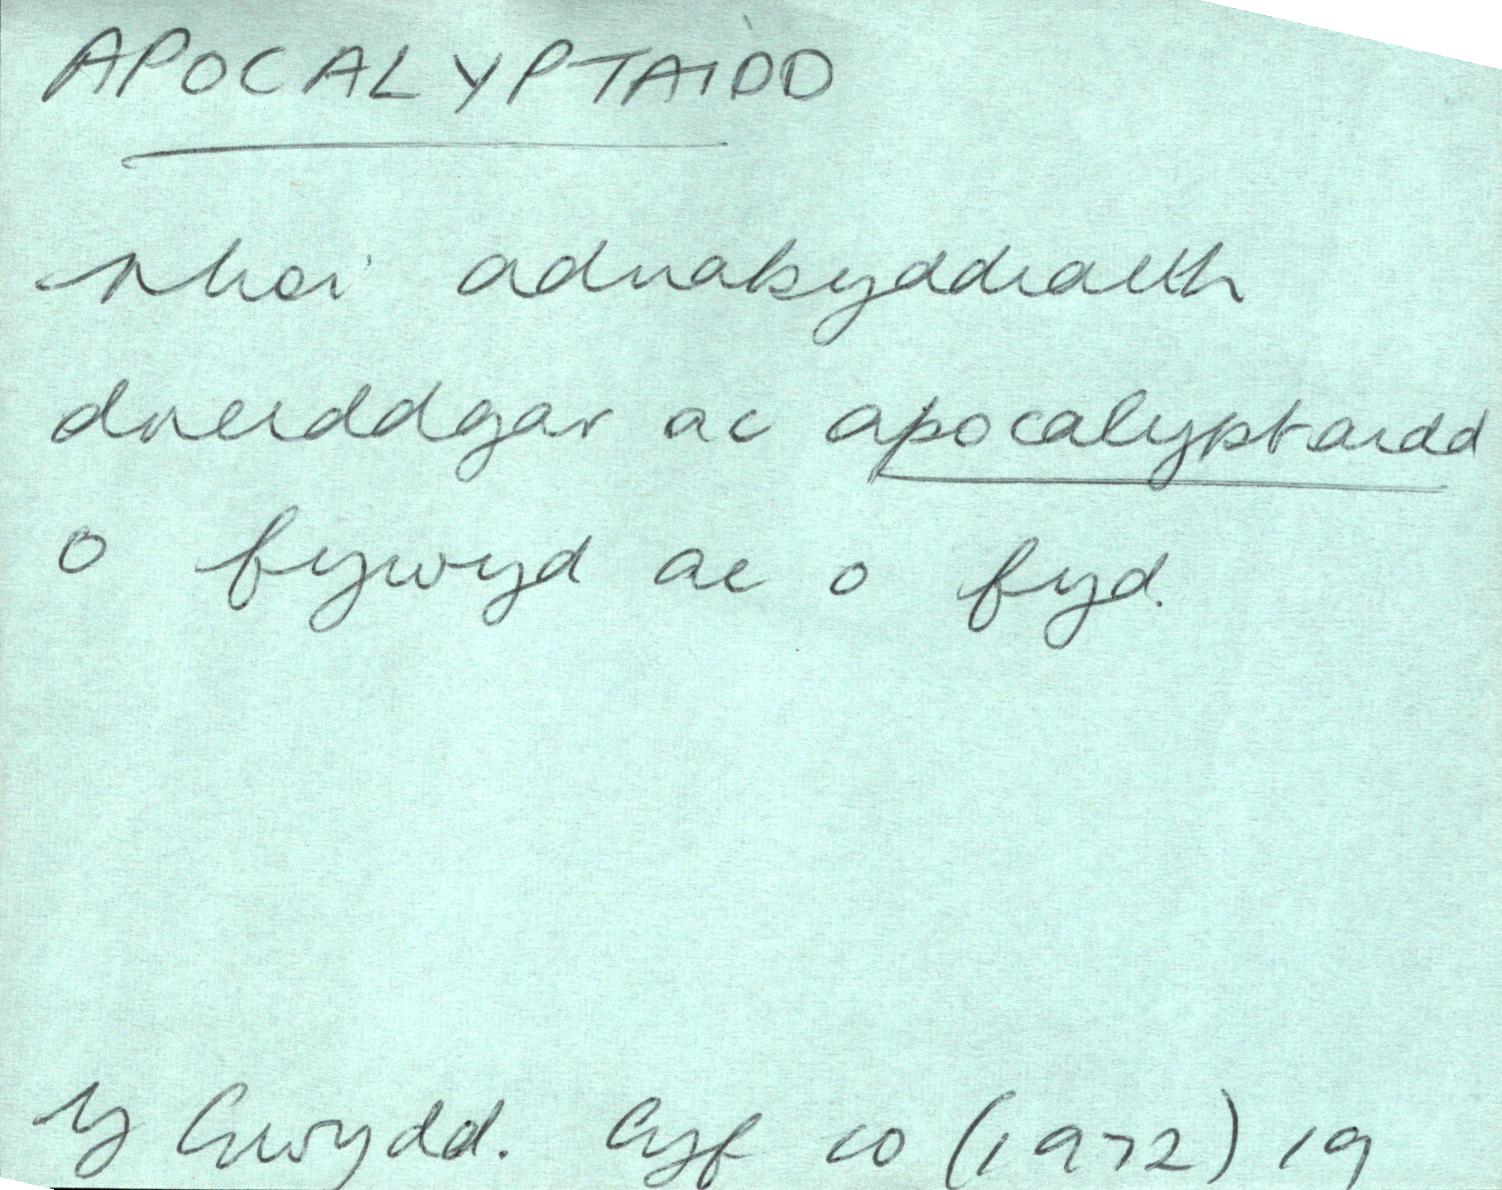 APOCALYPTAIDD
rhoi adnabyddiaeth
dreiddgar ac apocalyptaidd
o fywyd ac o fyd.
Y Gwydd. Cyf 10 (1972) 19